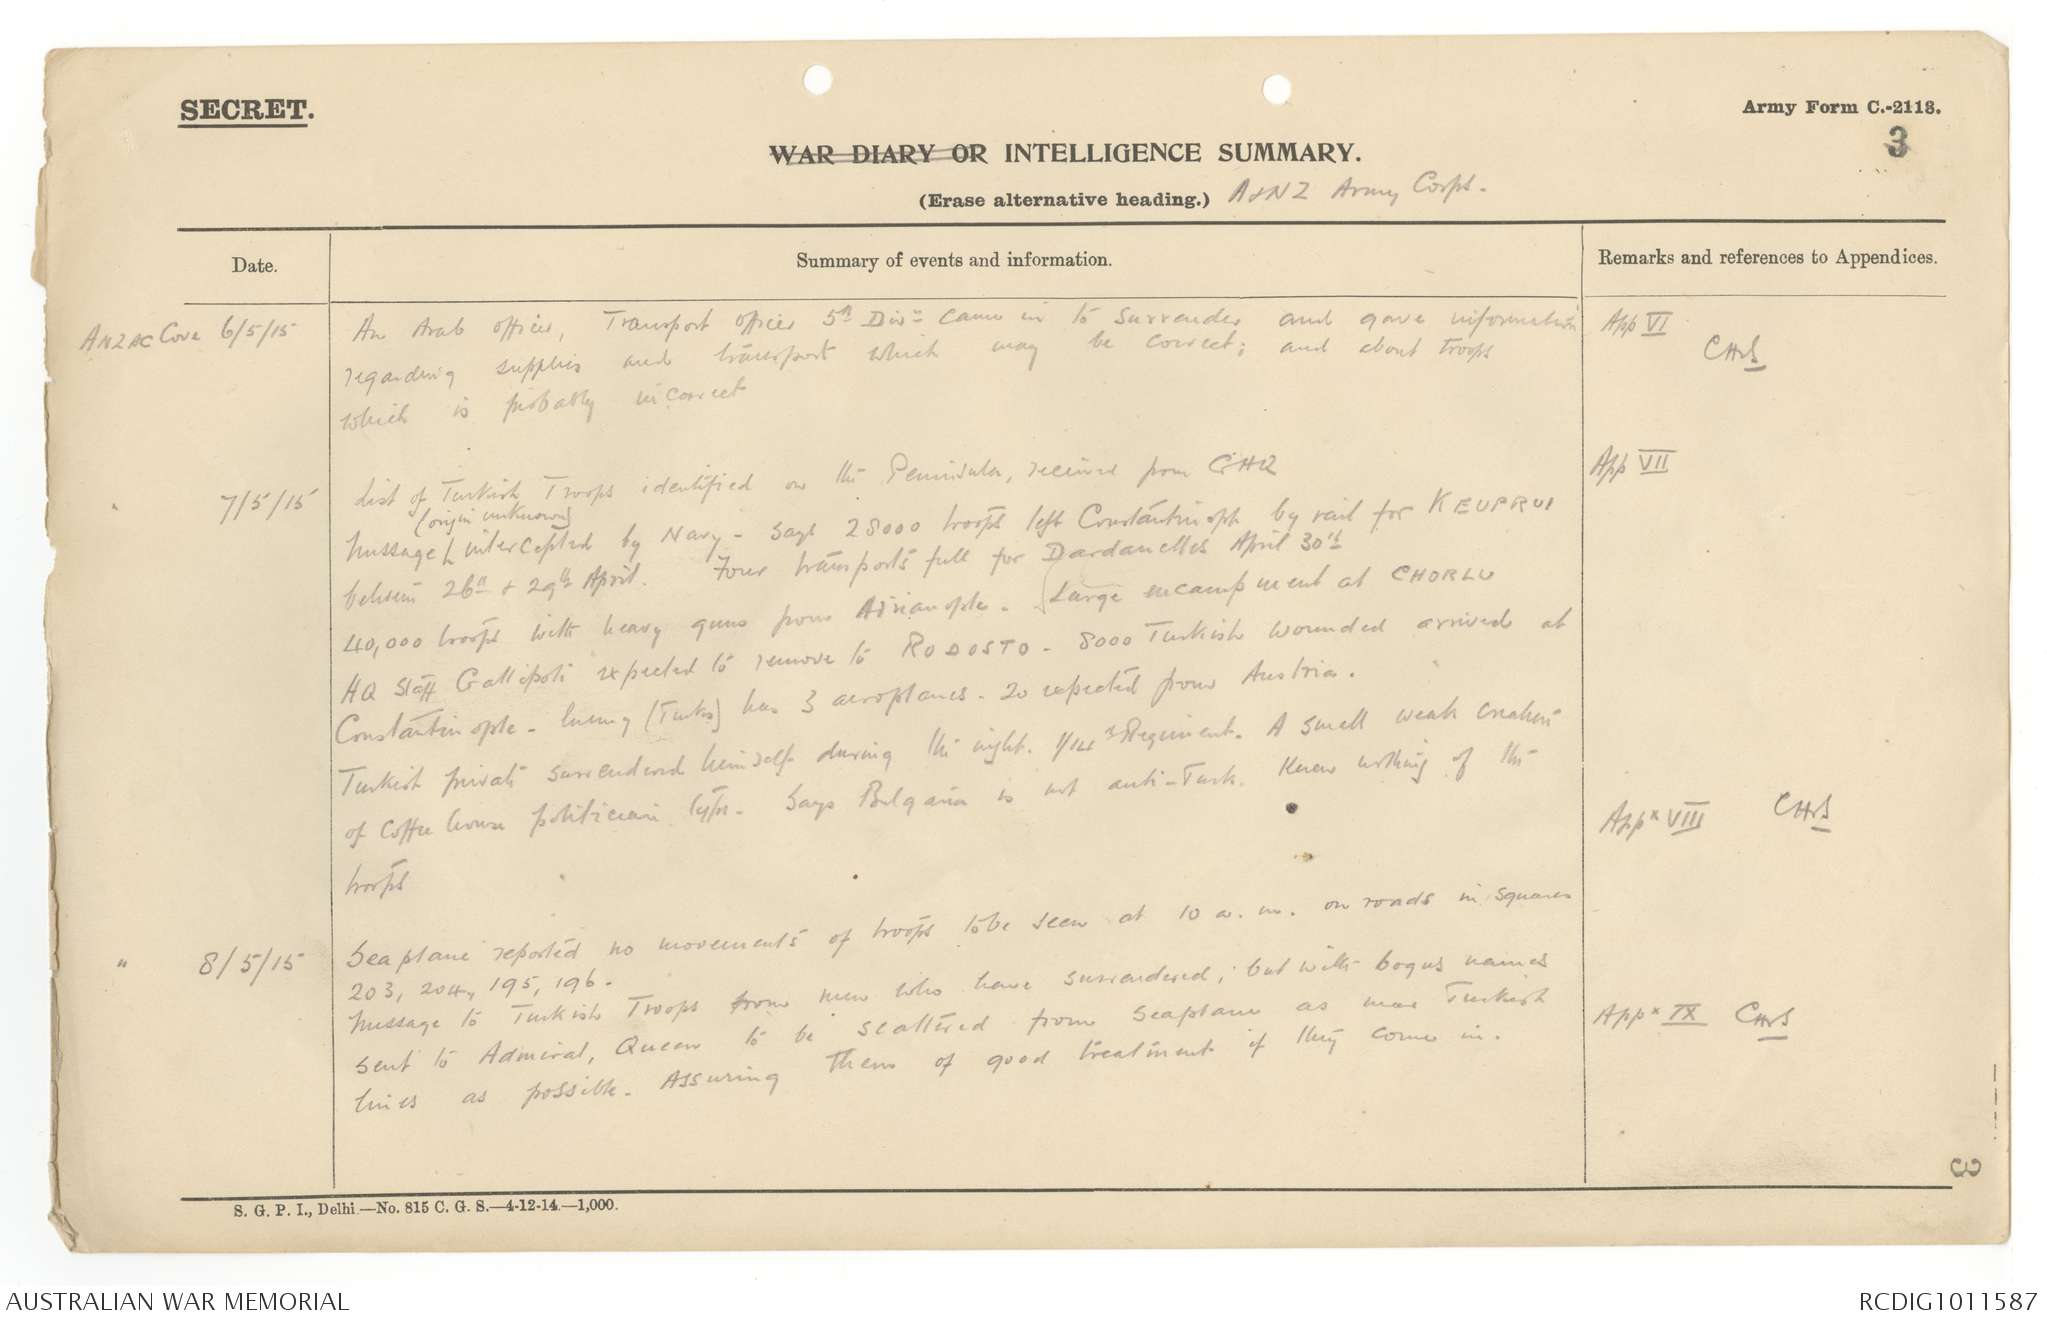 SECRET.
Army Form C.-2118.
3
WAR DIARY OR INTELLIGENCE SUMMARY.
(Erase alternative heading.) A & NZ Army Corps.
Date.
Summary of events and information.
Remarks and references to Appendices.
ANZAC Cove 6/5/15
An Arab officer, Transport officer 5th Divn came in to surrender and gave information
regarding supplies and transport which may be correct; and about troops
which is probably incorrect
App VI
CHS
" 7/5/15
List of Turkish Troops identified on the Peninsula, received from GHQ
(origin unknown)
Message intercepted by Navy - says 28000 troops left Constantinople by rail for KEUPRUI
between 26th & 29th April. Four transports full for Dardanelles April 30th
40,000 troops with heavy guns from Adrianople. Large encampment at CHORLU
HQ Staff Gallipoli expected to remove to RODOSTO - 8000 Turkish wounded arrived at
Constantinople - Enemy (Turks) has 3 aeroplanes - 20 expected from Austria.
Turkish private surrendered himself during the night. 1/14th Regiment. A small weak creature
of coffee house politician type. Says Bulgaria is not anti-Turk. Knew nothing of the
troops
App VII
Appx VIII
CHS
" 8/5/15
Seaplane reported no movements of troops to be seen at 10 a.m. on roads in squares
203, 204, 195, 196.
Message to Turkish Troops from men who have surrendered; but with bogus names
sent to Admiral, Queen to be scattered from seaplane as near Turkish
lines as possible. Assuring them of good treatment if they come in.
Appx IX
CHS
3
S. G. P. I., Delhi—No. 815 C. G. S.—4-12-14.—1,000.
AUSTRALIAN WAR MEMORIAL
RCDIG1011587